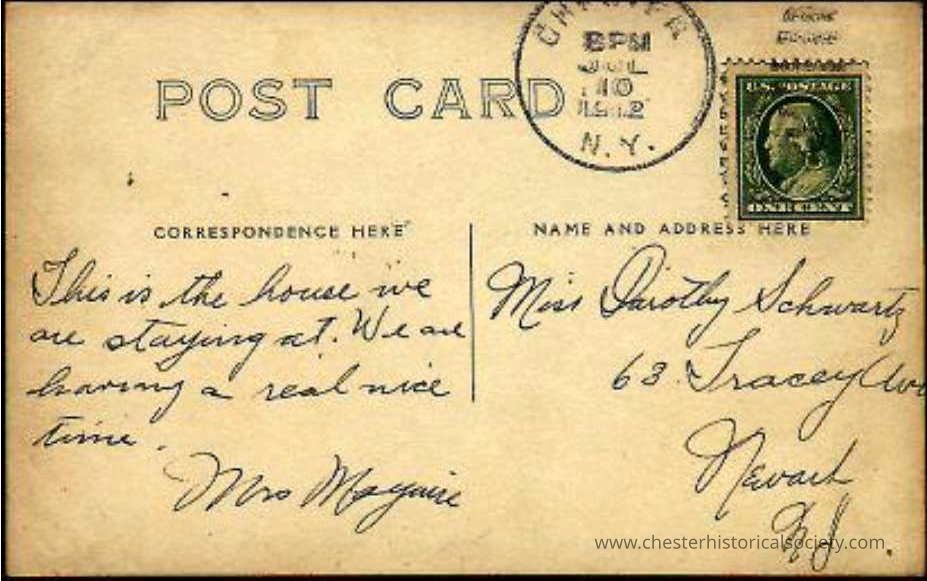 POST CARD
CHESTER
8 PM
JUL
10
1912
N.Y.
U.S. POSTAGE
ONE CENT
CORRESPONDENCE HERE
This is the house we
are staying at. We are
having a real nice
time.
Mrs Maguire
NAME AND ADDRESS HERE
Miss Dorothy Schwartz
63 Tracey Ave
Newark
N.J.
www.chesterhistoricalsociety.com